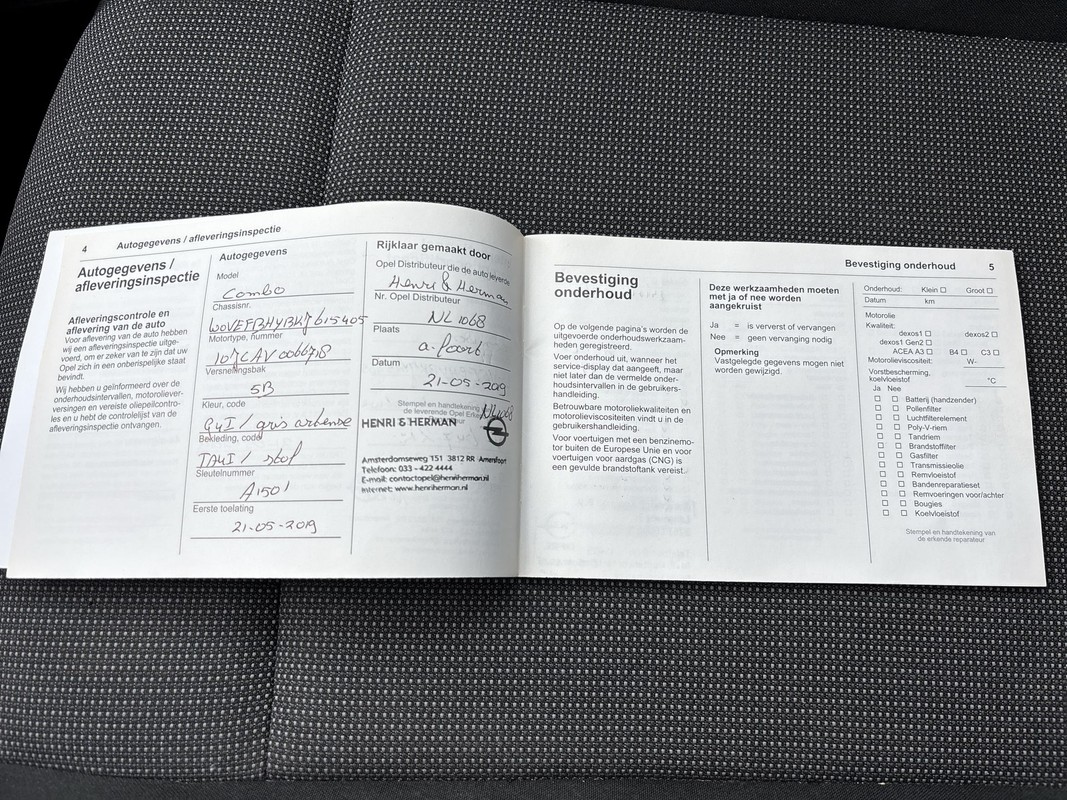 4 Autogegevens / afleveringsinspectie
Autogegevens /
afleveringsinspectie
Afleveringscontrole en
aflevering van de auto
Voor aflevering van de auto hebben
wij een afleveringsinspectie uitge-
voerd, om er zeker van te zijn dat uw
Opel zich in een onberispelijke staat
bevindt.
Wij hebben u geïnformeerd over de
onderhoudsintervallen, motoroliever-
versingen en vereiste oliepeilcontro-
les en u hebt de controlelijst van de
afleveringsinspectie ontvangen.
Autogegevens
Model
Combo
Chassisnr.
Motortype, nummer
Versnellingsbak
5B
Kleur, code
Q4I / gris artense
Bekleding, code
TA4I / stof
Sleutelnummer
A1501
Eerste toelating
21-05-2019
Rijklaar gemaakt door
Opel Distributeur die de auto leverde
Henri & Herman
Nr. Opel Distributeur
NL 1068
Plaats
a. foort
Datum
21-05-2019
Stempel en handtekening
de leverende Opel
NL1068
HENRI & HERMAN
Amsterdamseweg 151 3812 RR Amersfoort
Telefoon: 033 - 422 4444
E-mail: contactopel@henriherman.nl
Internet: www.henriherman.nl
Bevestiging onderhoud 5
Bevestiging
onderhoud
Op de volgende pagina's worden de
uitgevoerde onderhoudswerkzaam-
heden geregistreerd.
Voer onderhoud uit, wanneer het
service-display dat aangeeft, maar
niet later dan de vermelde onder-
houdsintervallen in de gebruikers-
handleiding.
Betrouwbare motoroliekwaliteiten en
motorolieviscositeiten vindt u in de
gebruikershandleiding.
Voor voertuigen met een benzinemo-
tor buiten de Europese Unie en voor
voertuigen voor aardgas (CNG) is
een gevulde brandstoftank vereist.
Deze werkzaamheden moeten
met ja of nee worden
aangekruist
Ja = is ververst of vervangen
Nee = geen vervanging nodig
Opmerking
Vastgelegde gegevens mogen niet
worden gewijzigd.
Onderhoud: Klein ☐ Groot ☐
Datum km
Motorolie
Kwaliteit:
dexos1 ☐ dexos2 ☐
dexos1 Gen2 ☐
ACEA A3 ☐ B4 ☐ C3 ☐
Motorolieviscositeit: W-
Vorstbescherming,
koelvloeistof °C
Ja Nee
☐ ☐ Batterij (handzender)
☐ ☐ Pollenfilter
☐ ☐ Luchtfilterelement
☐ ☐ Poly-V-riem
☐ ☐ Tandriem
☐ ☐ Brandstoffilter
☐ ☐ Gasfilter
☐ ☐ Transmissieolie
☐ ☐ Remvloeistof
☐ ☐ Bandenreparatieset
☐ ☐ Remvoeringen voor/achter
☐ ☐ Bougies
☐ ☐ Koelvloeistof
Stempel en handtekening van
de erkende reparateur